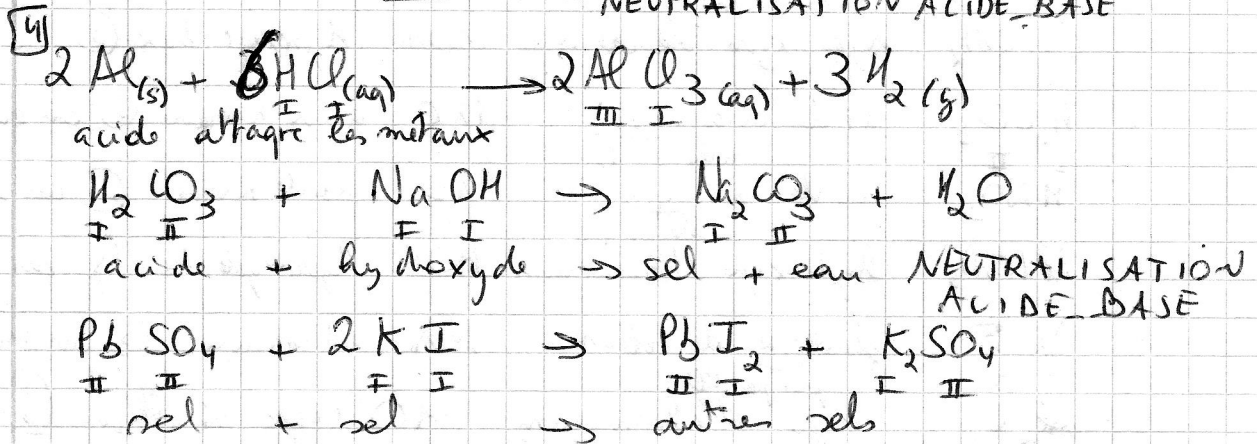 NEUTRALISATION ACIDE_BASE
4
2 Al(s) + 6 HCl(aq) → 2 AlCl3 (aq) + 3 H2 (g)
I I III I
acide attaque les métaux
H2 CO3 + Na OH → Na2 CO3 + H2O
I II I I I II
acide + hydroxyde → sel + eau NEUTRALISATION
ACIDE_BASE
Pb SO4 + 2 K I → Pb I2 + K2SO4
II II I I II I I II
sel + sel → autres sels